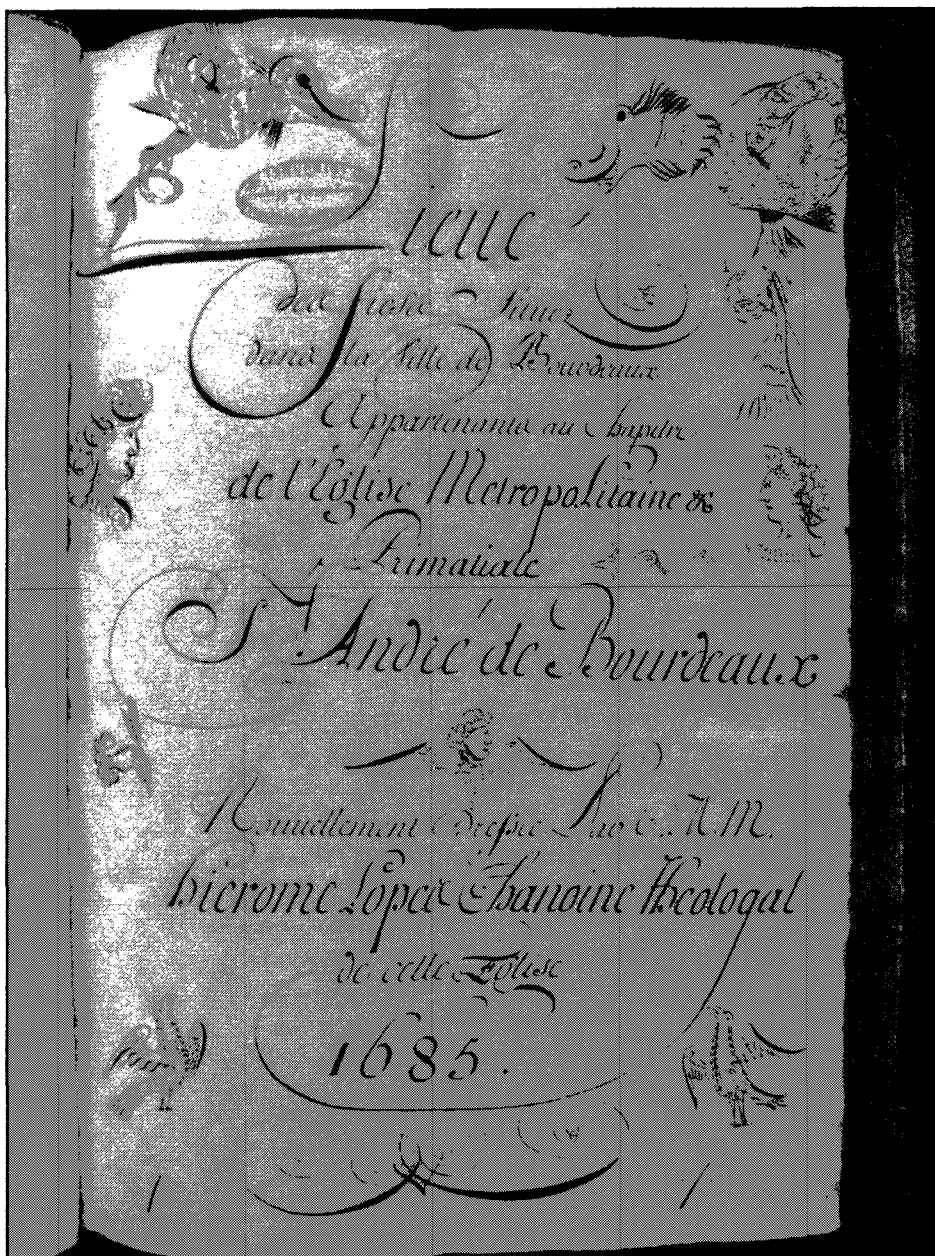 Lieué
des Fiefs Situez
dans la Ville de Bourdeaux
Appartenants au Chapitre
de l'Eglise Metropolitaine &
Primatiale
St André de Bourdeaux
Nouuellement Dressée Par M.
hierome Lopez Chanoine Theologal
de cette Eglise
1685.